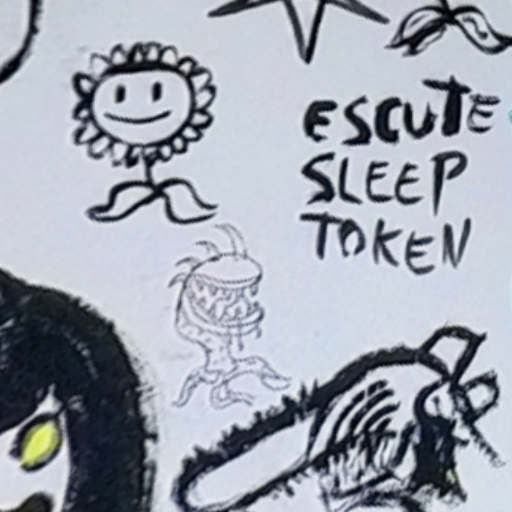 ESCUTE
SLEEP
TOKEN